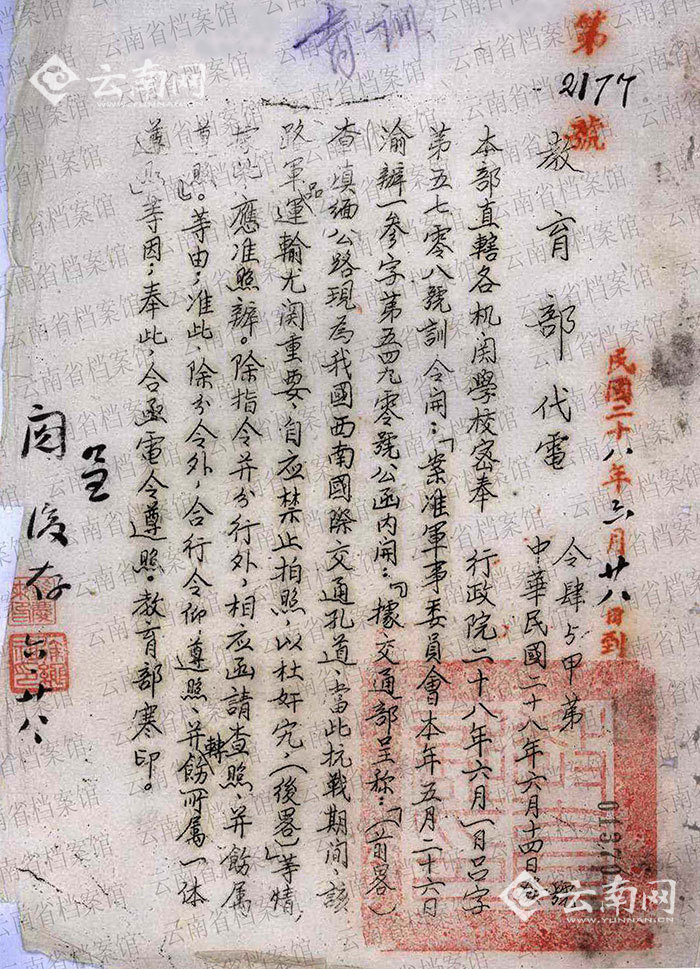 育訓
第
2177
號
教育部代電
令肆与甲第
號
01570
中華民國二十八年六月十四日
民國二十八年六月廿八日到
本部直轄各机関學校密奉 行政院二十八年六月一日呂字
第五七零八號訓令開：「案准軍事委員會本年五月二十六日
渝辦一參字第五四九零號公函内開：『據交通部呈称：「(首畧)
查滇緬公路現為我國西南國際交通孔道、當此抗戦期间、該
路軍品運輸尤関重要、自应禁止拍照、以杜奸宄、(後畧)」等情，
據此，應准照辦。除指令并分行外，相应函請查照、并飭属
遵照』。等由；准此，除分令外，合行令仰遵照、并轉飭所属一体
遵照」等因；奉此，合亟電令遵照。教育部寒印。
呈
閱後存
六、廿八
云南网
云南网
WWW.YUNNAN.CN
云南省档案馆